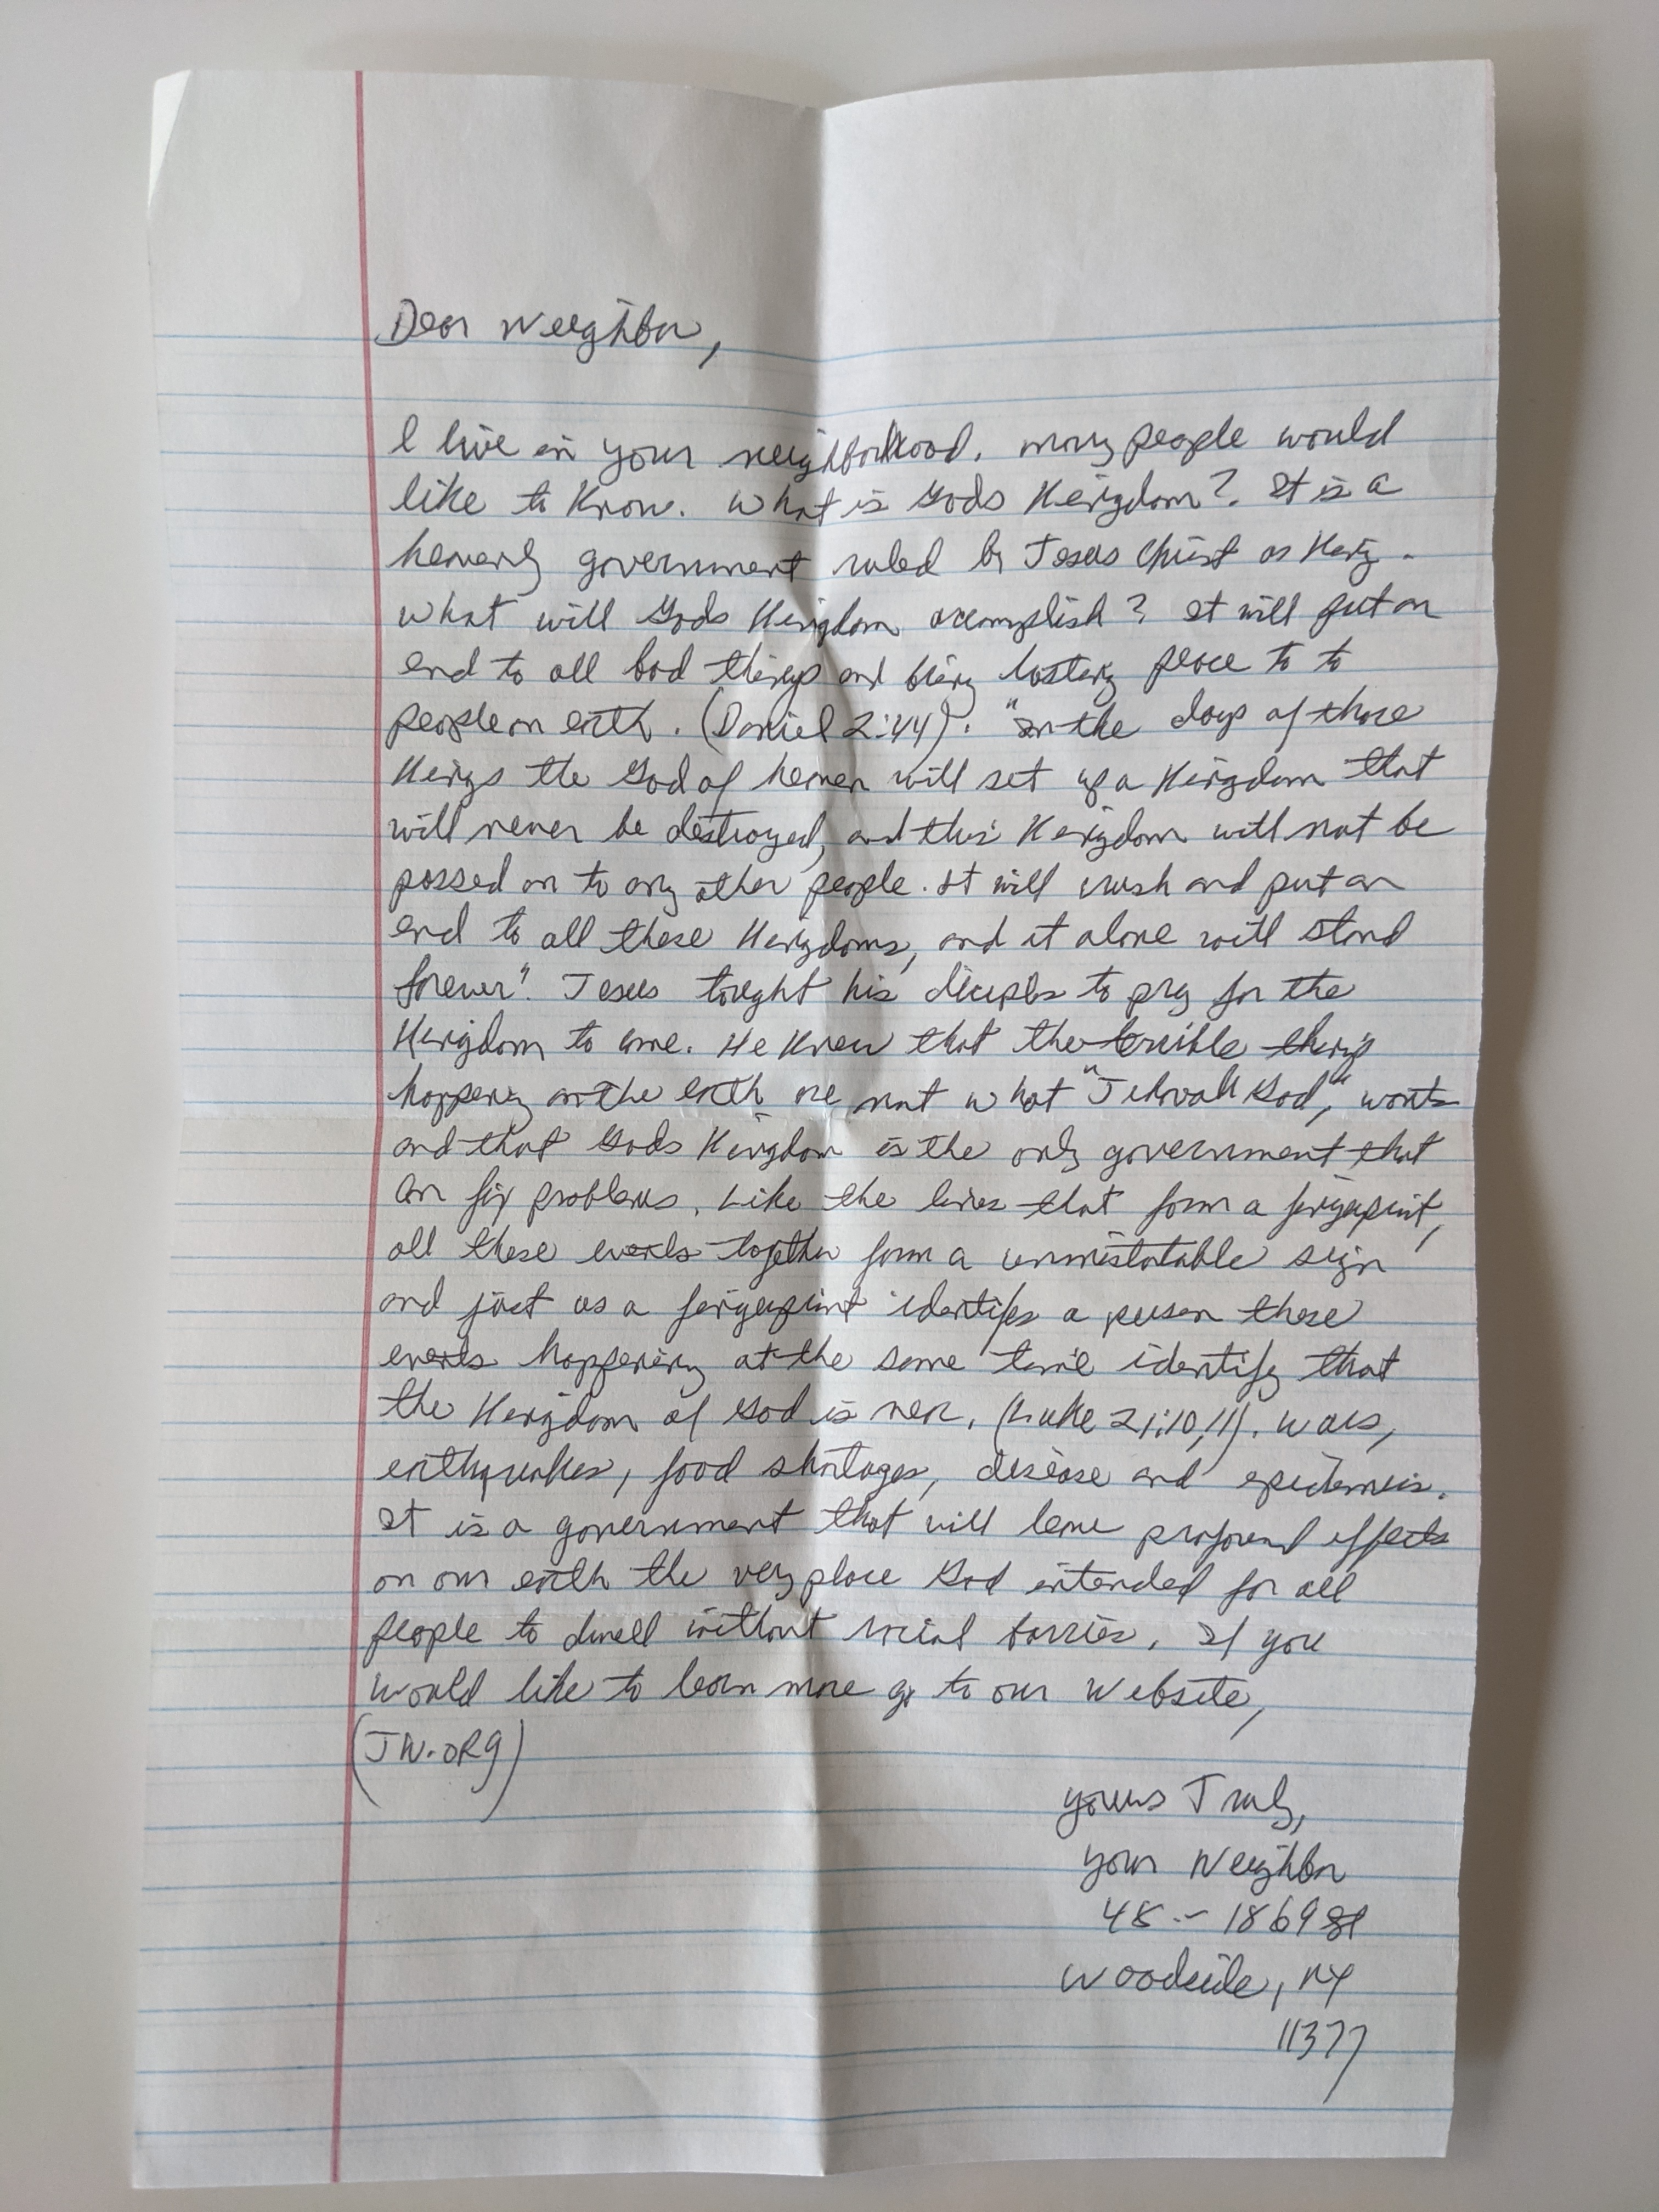 Dear Neighbor,
I live in your neighborhood. many people would
like to Know. What is Gods Kingdom? It is a
heavenly government ruled by Jesus Christ as King.
What will Gods Kingdom accomplish? It will put an
end to all bad things and bring lasting peace to to
people on earth. (Daniel 2:44). "In the days of those
Kings the God of heaven will set up a Kingdom that
will never be destroyed, and this Kingdom will not be
passed on to any other people. It will crush and put an
end to all these Kingdoms, and it alone will stand
forever". Jesus taught his disciples to pray for the
Kingdom to come. He Knew that the terrible things
happening on the earth are not what "Jehovah God", wants
and that Gods Kingdom is the only government that
can fix problems. Like the lines that form a fingerprint,
all these events together form a unmistakable sign
and just as a fingerprint identifies a person these
events happening at the same time identify that
the Kingdom of God is near. (Luke 21:10,11). Wars,
earthquakes, food shortages, disease and epidemics.
It is a government that will leave profound effects
on our earth the very place God intended for all
people to dwell without racial barries. If you
would like to learn more go to our Website,
(JW.ORG)
Yours Truly,
Your Neighbor
48-18 69 St
Woodside, NY
11377